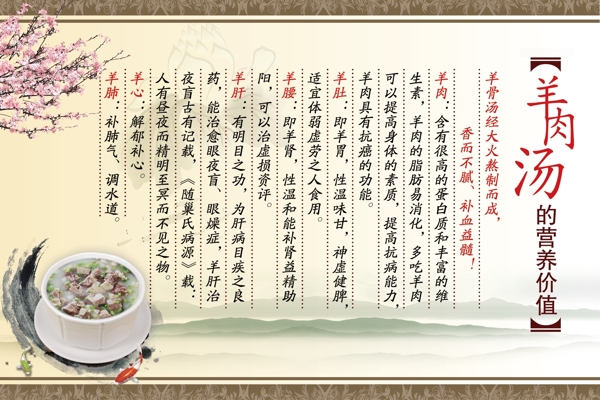 【羊肉汤的营养价值】
羊骨汤经大火熬制而成，
香而不腻、补血益髓！
羊肉：含有很高的蛋白质和丰富的维
生素，羊肉的脂肪易消化，多吃羊肉
可以提高身体的素质，提高抗病能力，
羊肉具有抗癌的功能。
羊肚：即羊胃，性温味甘，神虚健脾，
适宜体弱虚劳之人食用。
羊腰：即羊肾，性温和能补肾益精助
阳，可以治虚损资评。
羊肝：有明目之功，为肝病目疾之良
药，能治愈眼夜盲、眼燥症，羊肝治
夜盲古有记载，《随巢氏病源》载：
人有昼夜而精明至冥而不见之物。
羊心：解郁补心。
羊肺：补肺气、调水道。